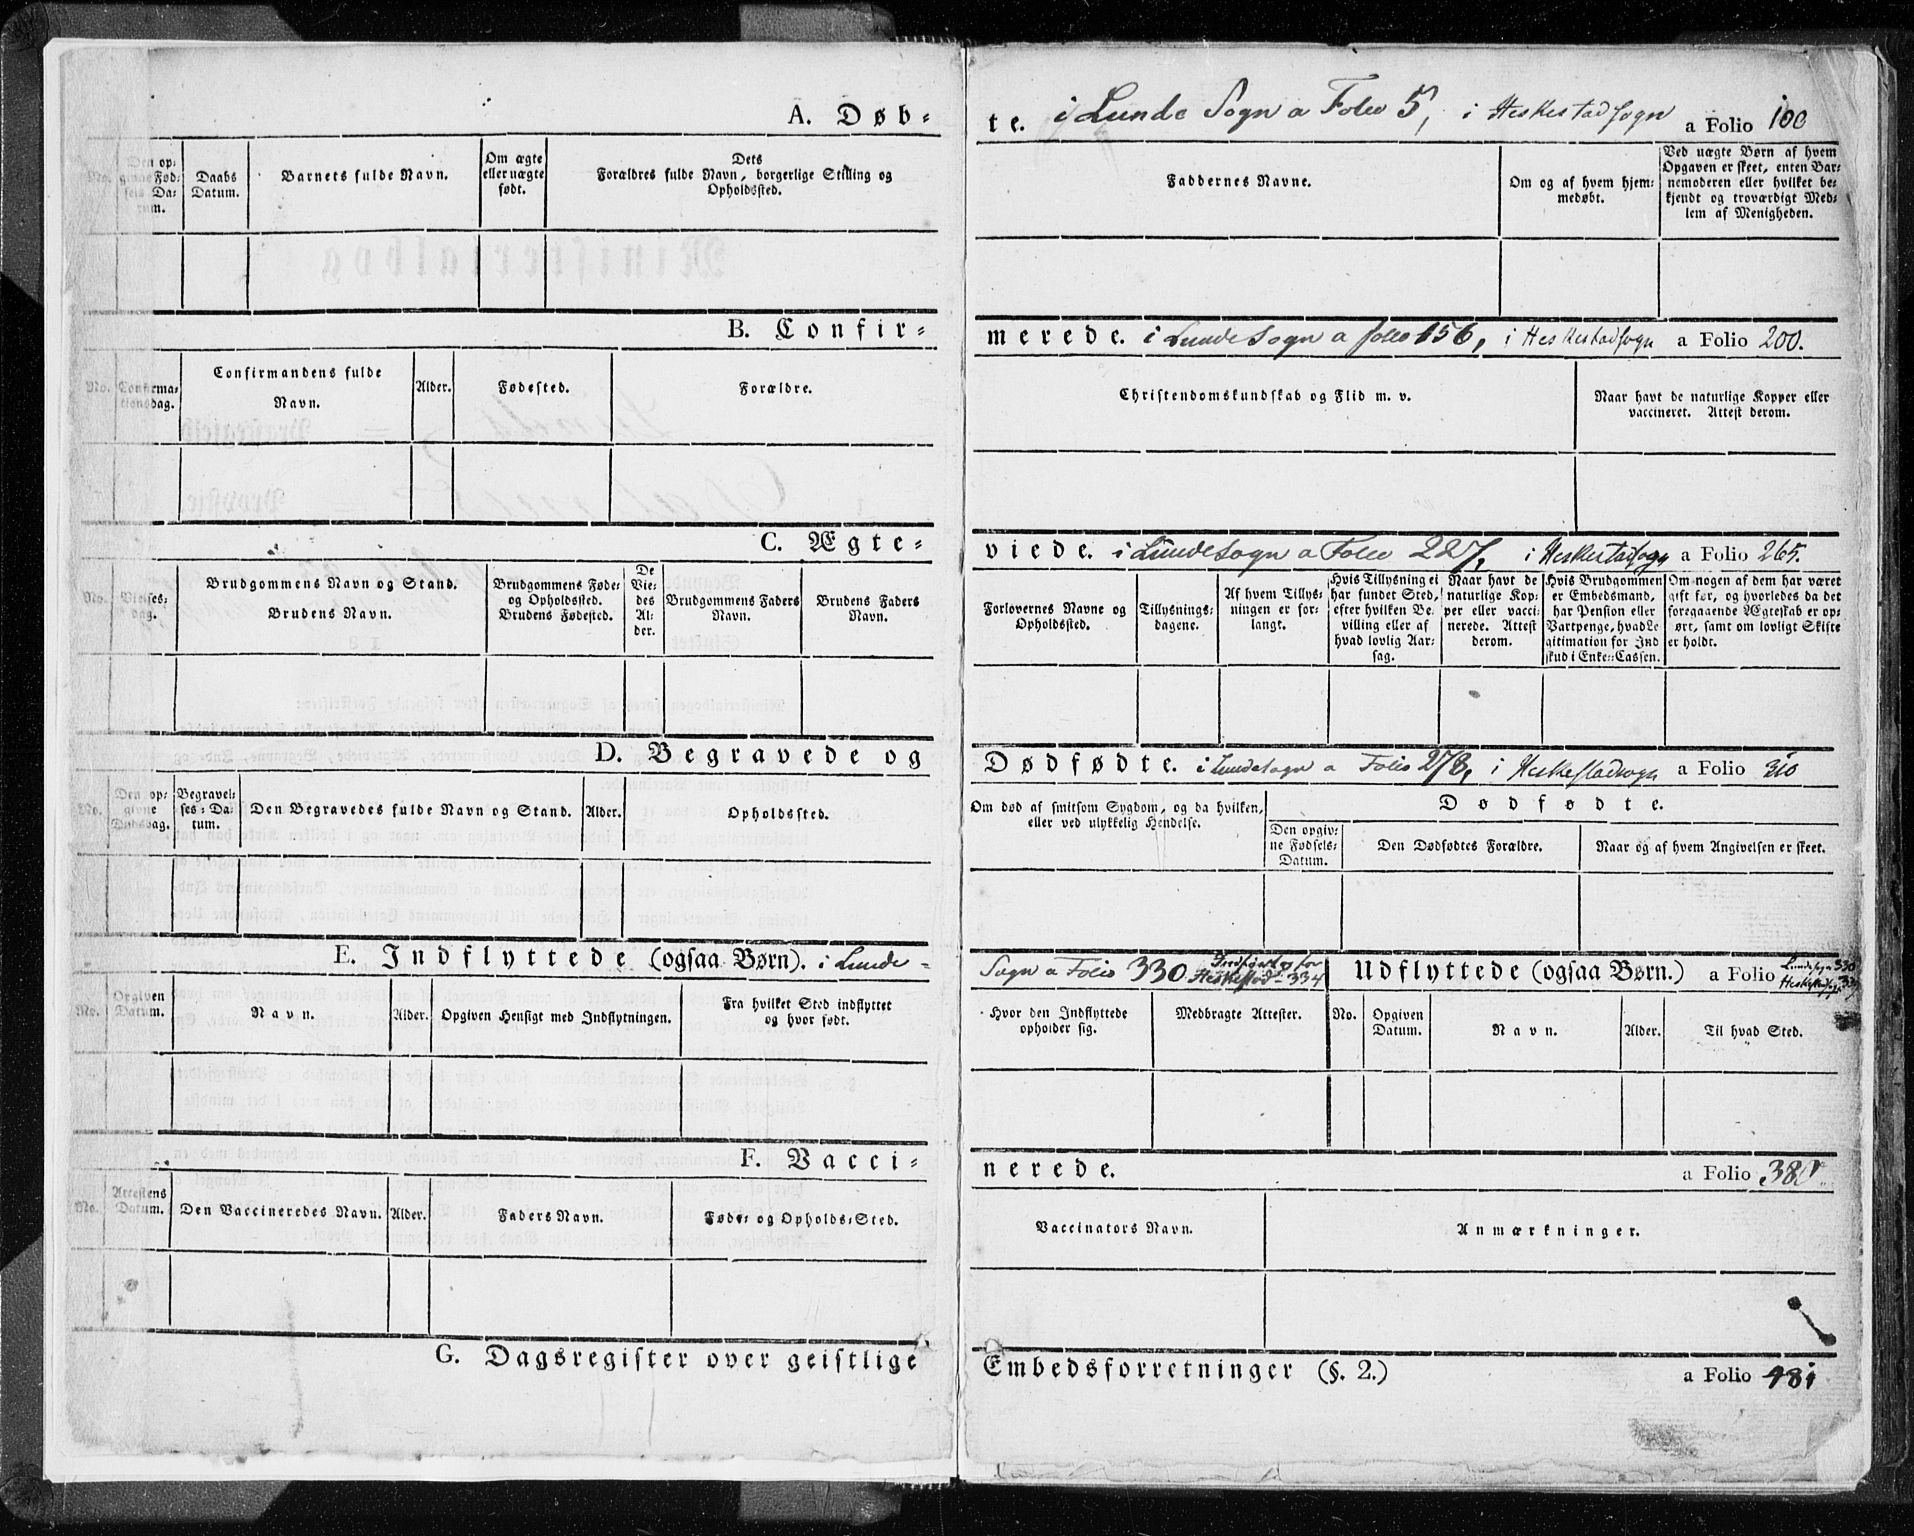 A. Døb-
te. i Lunde Sogn a Folio 5, i Heskestad sogn a Folio 100
No.
Den op-
givne Fød-
sels Da-
tum.
Daabs
Datum.
Barnets fulde Navn.
Om ægte
eller uægte
født.
Dets
Forældres fulde Navn, borgerlige Stilling og
Opholdssted.
Faddernes Navne.
Om og af hvem hjem-
medøbt.
Ved uægte Børn af hvem
Opgaven er skeet, enten Bar-
nemoderen eller hvilket be-
kjendt og troværdigt Med-
lem af Menigheden.
B. Confir-
merede. i Lunde Sogn a folio 156, i Heskestad sogn a Folio 200.
No.
Confirma-
tionsdag.
Confirmandens fulde
Navn.
Alder.
Fødested.
Forældre.
Christendomskundskab og Flid m. v.
Naar havt de naturlige Kopper eller
vaccineret. Attest derom.
C. Ægte-
viede. i Lunde Sogn a Folio 227, i Heskestad sogn a Folio 265.
No.
Vielses-
dag.
Brudgommens Navn og Stand.
Brudens Navn.
Brudgommens Føde-
og Opholdssted.
Brudens Fødested.
De
Vie-
des
Al-
der.
Brudgommens Faders
Navn.
Brudens Faders
Navn.
Forlovernes Navne og
Opholdssted.
Tillysnings-
dagene.
Af hvem Tillys-
ningen er for-
langt.
Hvis Tillysning ei
har fundet Sted,
efter hvilken Be-
villing eller af
hvad lovlig Aar-
sag.
Naar havt de
naturlige Kop-
per eller vacci-
nerede. Attest
derom.
Hvis Brudgommen
er Embedsmand,
har Pension eller
Vartpenge, hvad Le
gitimation for Ind
skud i Enke-Cassen.
Om nogen af dem har været
gift før, og hvorledes da det
foregaaende Ægteskab er op-
ørt, samt om lovligt Skifte
er holdt.
D. Begravede og
Dødfødte. i Lunde sogn a Folio 278, i Heskestad sogn a Folio 310
No.
Den op-
givne
Dødsdag.
Begravel-
ses-Da-
tum.
Den Begravedes fulde Navn og Stand.
Alder.
Opholdssted.
Om død af smitsom Sygdom, og da hvilken,
eller ved ulykkelig Hendelse.
Dødfødte.
Den opgiv-
ne Fødsels-
Datum.
Den Dødfødtes Forældre.
Naar og af hvem Angivelsen er skeet.
E. Indflyttede (ogsaa Børn). i Lunde-
Sogn a Folio 330 Heskestad - 334 Udflyttede (ogsaa Børn.) a Folio Lunde sogn 330
No.
Opgiven
Datum.
Navn.
Alder.
Opgiven Hensigt med Indflytningen.
Fra hvilket Sted indflyttet
og hvor født.
Hvor den Indflyttede
opholder sig.
Medbragte Attester.
No.
Opgiven
Datum.
Navn.
Alder.
Til hvad Sted.
F. Vacci-
nerede. a Folio
No.
Attestens
Datum.
Den Vaccineredes Navn.
Alder.
Faders Navn.
Føde- og Opholds-Sted.
Vaccinators Navn.
Anmærkninger.
G. Dagsregister over geistlige
Embedsforretninger (§. 2.) a Folio 481